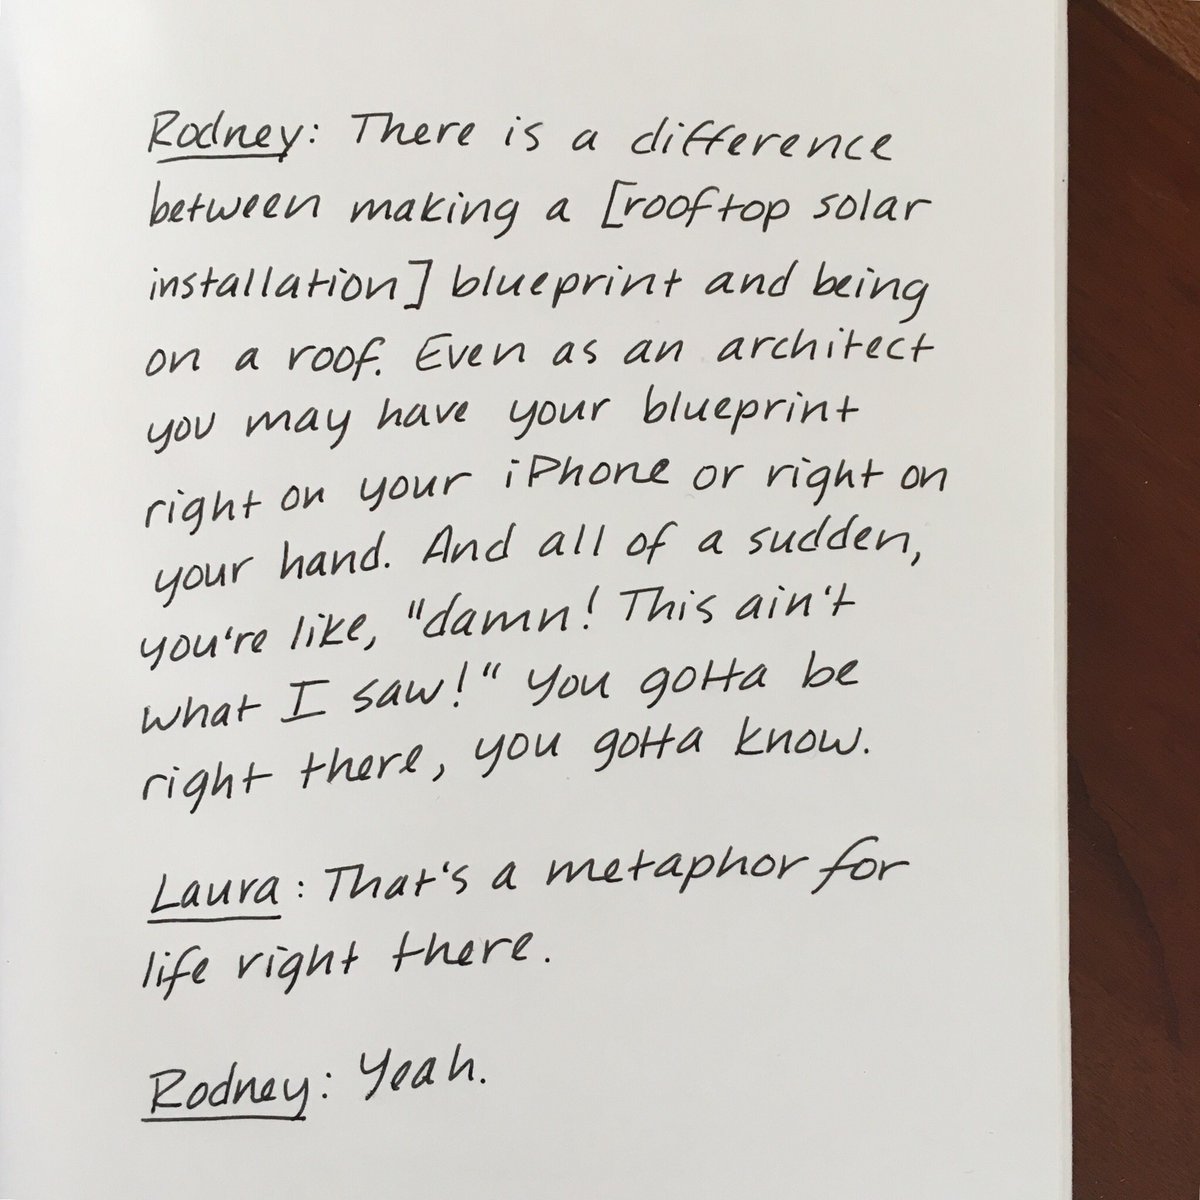 Rodney: There is a difference
between making a [rooftop solar
installation] blueprint and being
on a roof. Even as an architect
you may have your blueprint
right on your iPhone or right on
your hand. And all of a sudden,
you're like, "damn! This ain't
what I saw!" You gotta be
right there, you gotta know.
Laura: That's a metaphor for
life right there.
Rodney: Yeah.